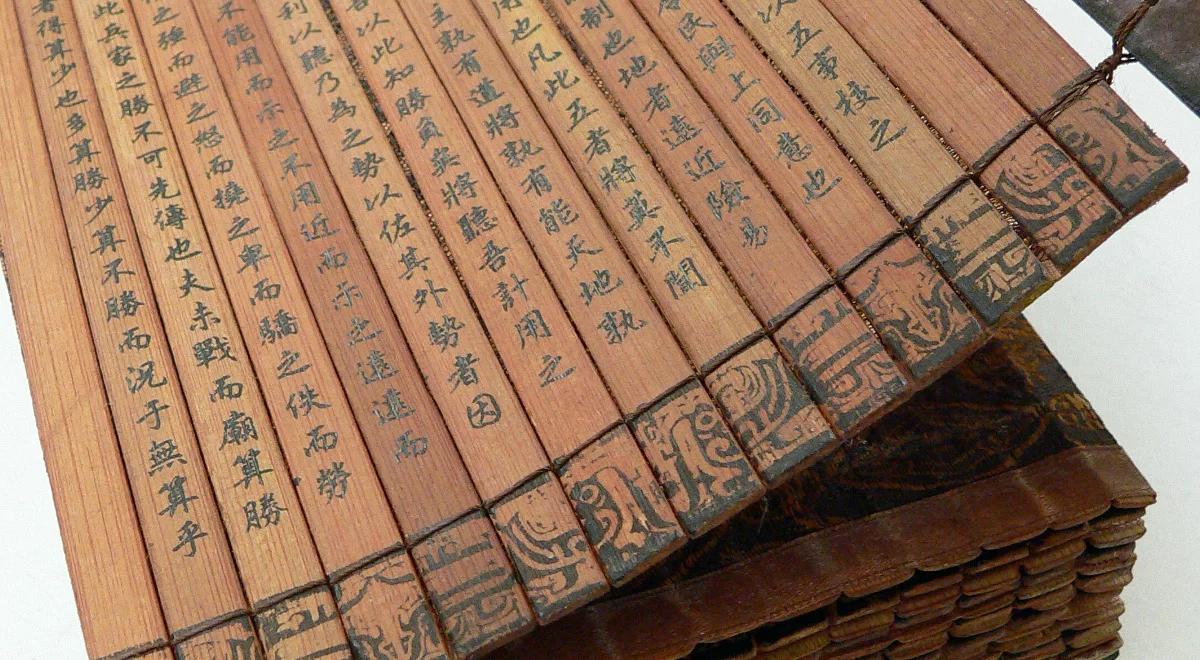 以五事校之
民與上同意也
制也地者遠近險易
用也凡此五者將莫不聞
主孰有道將孰有能天地孰
以此知勝負矣將聽吾計用之
利以聽乃為之勢以佐其外勢者因
不能用而示之不用近而示之遠遠而
之強而避之怒而撓之卑而驕之佚而勞
此兵家之勝不可先傳也夫未戰而廟算勝
者得算少也多算勝少算不勝而況于無算乎